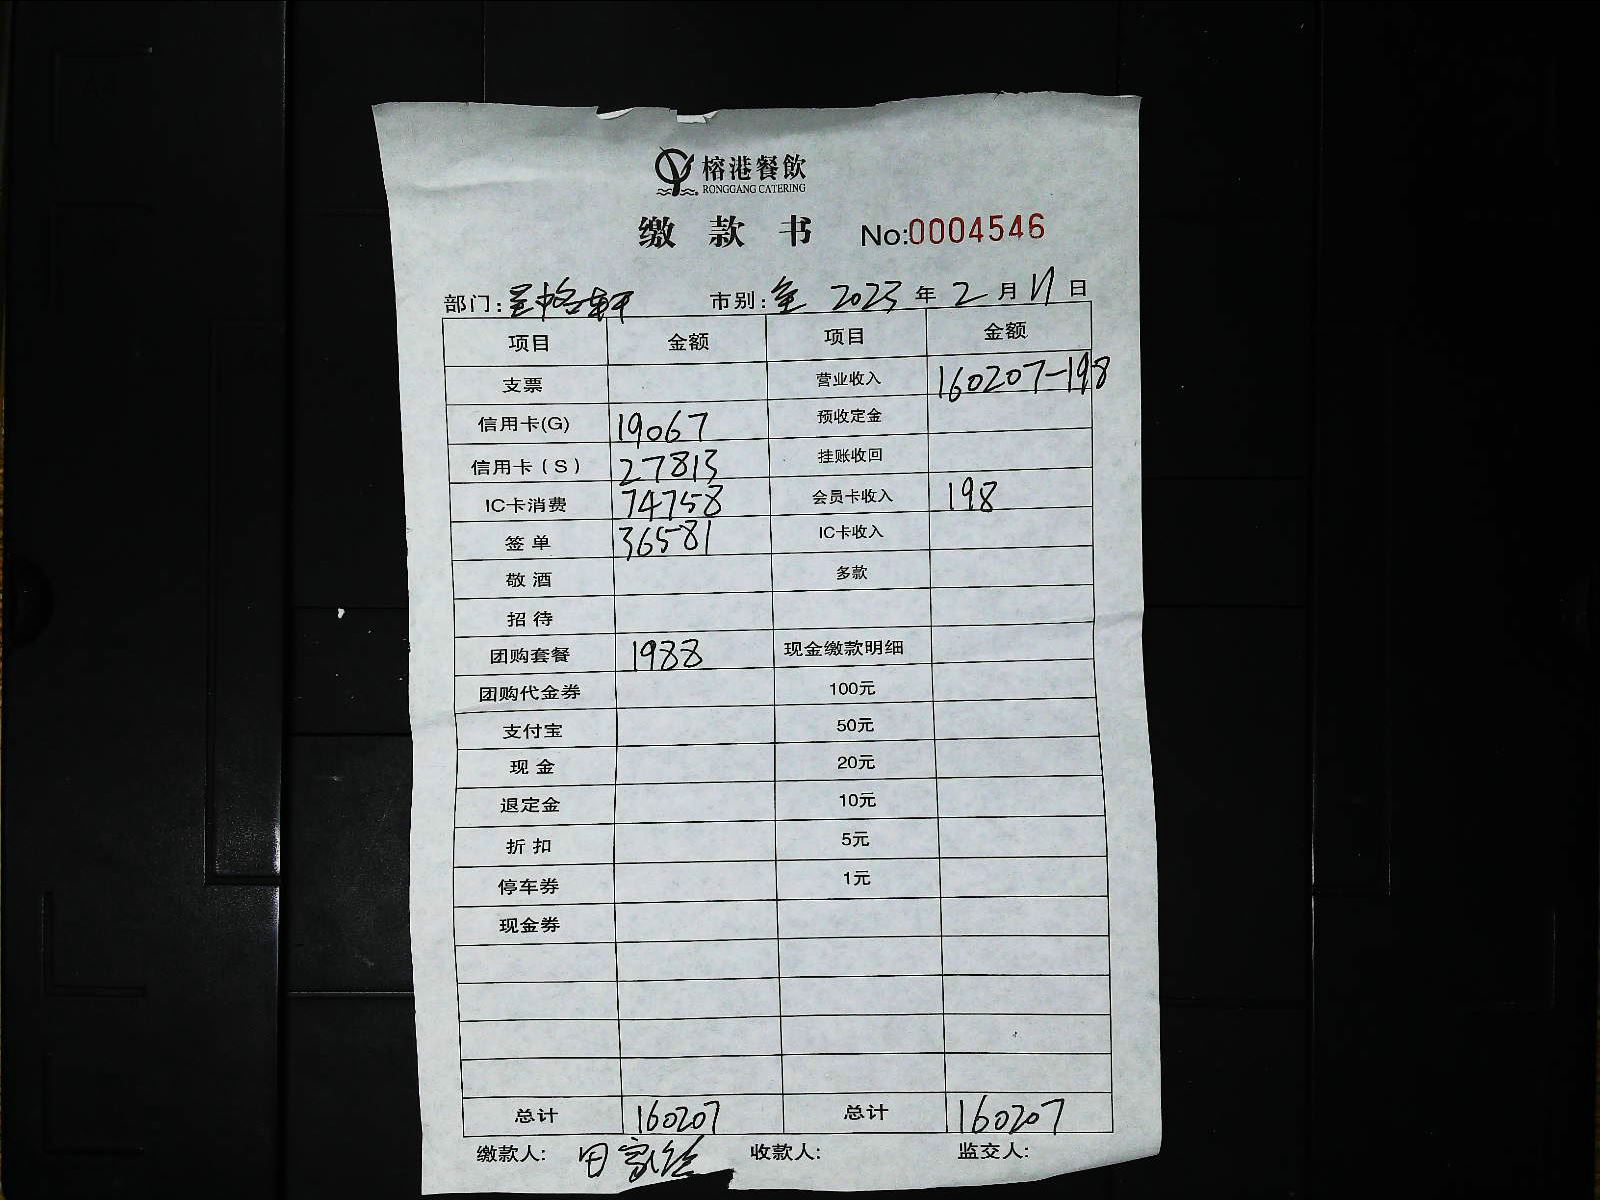 榕港餐飲
RONGGANG CATERING
缴款书 No:0004546
部门: 市别: 2023年2月日
项目 金额 项目 金额
支票 营业收入 160207-198
信用卡(G) 19067 预收定金
信用卡(S) 27813 挂账收回
IC卡消费 74758 会员卡收入 198
签单 36581 IC卡收入
敬酒 多款
招待
团购套餐 1988 现金缴款明细
团购代金券 100元
支付宝 50元
现金 20元
退定金 10元
折扣 5元
停车券 1元
现金券
总计 160207 总计 160207
缴款人: 田家 收款人: 监交人: